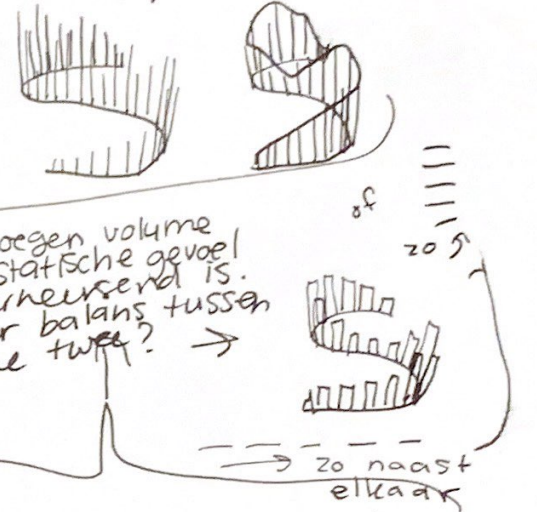 of
zo
oegen volume
statische gevoel
rheersend is.
r balans tussen
e twee?
zo naast
elkaar